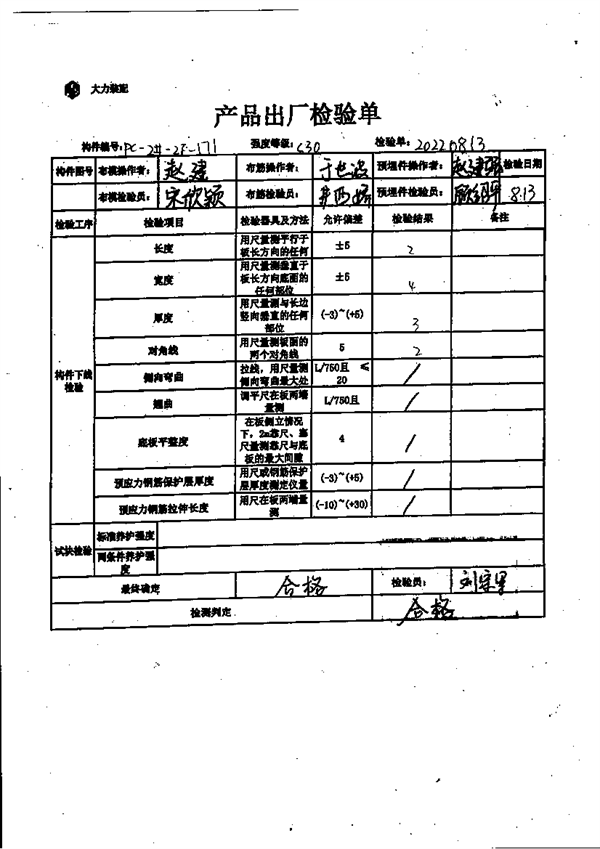 大力装配
产品出厂检验单
构件编号: PC-2#-2F-171 强度等级: C30 检验单: 20220813
构件图号 布模操作者: 赵建 布筋操作者: 预埋件操作者: 赵建强 检验日期
布模检验员: 宋欣颖 布筋检验员: 预埋件检验员: 8.13
检验工序 检验项目 检验器具及方法 允许偏差 检验结果 备注
构件下线检验
长度 用尺量测平行于板长方向的任何 ±5 2
宽度 用尺量测垂直于板长方向底面的任何部位 ±5 4
厚度 用尺量测与长边竖向垂直的任何部位 (-3)~(+5) 3
对角线 用尺量测板面的两个对角线 5 2
侧向弯曲 拉线,用尺量测侧向弯曲最大处 L/750且 ≤20 /
翘曲 调平尺在板两端量测 L/750且 /
底板平整度 在板侧立情况下,2m靠尺、塞尺量测靠尺与底板的最大间隙 4 /
预应力钢筋保护层厚度 用尺或钢筋保护层厚度测定仪量 (-3)~(+5) /
预应力钢筋拉伸长度 用尺在板两端量测 (-10)~(+30) /
试块检验 标准养护强度
同条件养护强度
最终确定 合格 检验员:
检测判定 合格